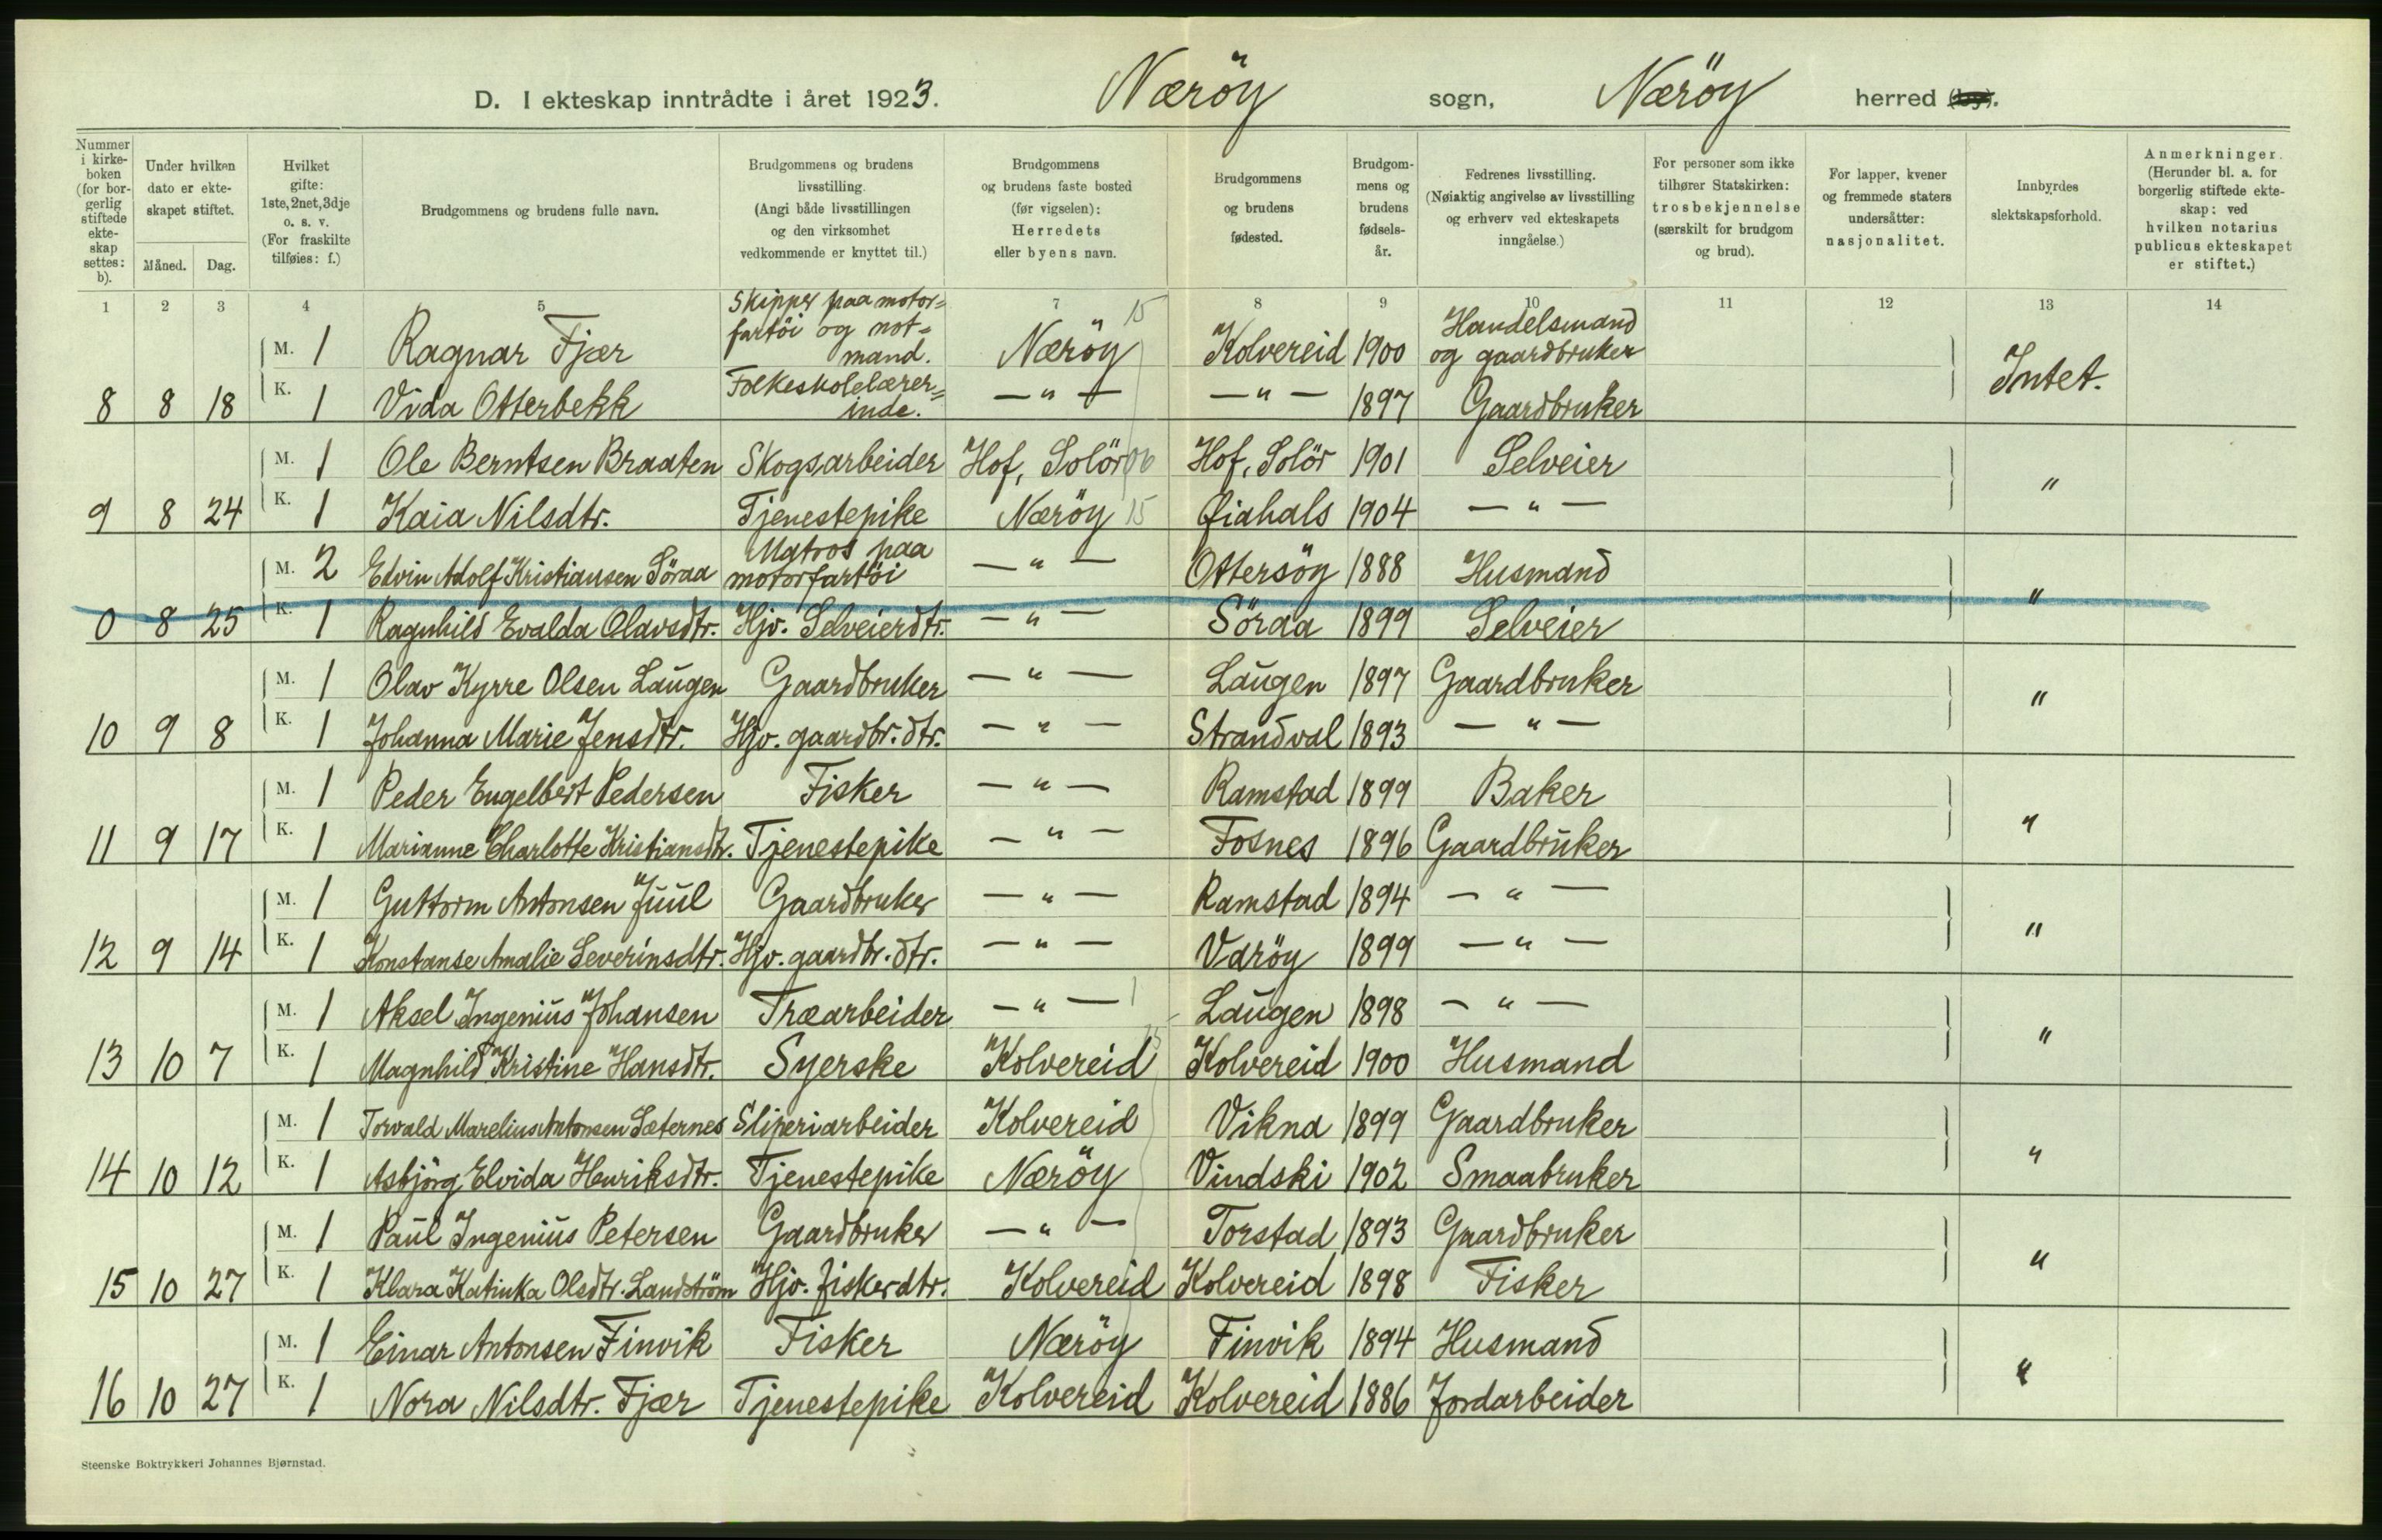 D. I ekteskap inntrådte i året 1923. Næröy sogn, Næröy herred (by).
Nummer i kirke-boken (for bor-gerlig stiftede ekte-skap settes: b).
Under hvilken dato er ekte-skapet stiftet.
Måned. Dag.
Hvilket gifte: 1ste, 2net, 3dje o. s. v. (For fraskilte tilføies: f.)
Brudgommens og brudens fulle navn.
Brudgommens og brudens livsstilling. (Angi både livsstillingen og den virksomhet vedkommende er knyttet til.)
Brudgommens og brudens faste bosted (før vigselen): Herredets eller byens navn.
Brudgommens og brudens fødested.
Brudgom-mens og brudens fødsels-år.
Fedrenes livsstilling. (Nøiaktig angivelse av livsstilling og erhverv ved ekteskapets inngåelse.)
For personer som ikke tilhører Statskirken: trosbekjennelse (særskilt for brudgom og brud).
For lapper, kvener og fremmede staters undersåtter: nasjonalitet.
Innbyrdes slektskapsforhold.
Anmerkninger. (Herunder bl. a. for borgerlig stiftede ekte-skap: ved hvilken notarius publicus ekteskapet er stiftet.)
1 2 3 4 5 6 7 8 9 10 11 12 13 14
M. 1 Ragnar Fjær Skipper paa motor=fartöi og not=mand. Næröy 15 Kolvereid 1900 Handelsmand og gaardbruker
8 8 18 K. 1 Vida Otterbekk Folkeskolelærer=inde. — " — — " — 1897 Gaardbruker Intet.
M. 1 Ole Berntsen Braaten Skogsarbeider Hof, Solör 06 Hof, Solör 1901 Selveier
9 8 24 K. 1 Kaia Nilsdtr. Tjenestepike Næröy 15 Øiahals 1904 — " — "
M. 2 Edvin Adolf Kristiansen Söraa Matros paa motorfartöi — " — Ottersöy 1888 Husmand
0 8 25 K. 1 Ragnhild Evalda Olavsdtr. Hjv. Selveierdtr. — " — Söraa 1899 Selveier "
M. 1 Olav Kyrre Olsen Laugen Gaardbruker — " — Laugen 1897 Gaardbruker
10 9 8 K. 1 Johanna Marie Jensdtr. Hjv. gaardbr. dtr. — " — Strandval 1893 — " — "
M. 1 Peder Engelbert Pedersen Fisker — " — Ramstad 1899 Baker
11 9 17 K. 1 Marianne Charlotte Kristiansdtr. Tjenestepike — " — Fosnes 1896 Gaardbruker "
M. 1 Guttorm Antonsen Juul Gaardbruker — " — Ramstad 1894 — " —
12 9 14 K. 1 Konstanse Amalie Severinsdtr. Hjv. gaardbr. dtr. — " — Varöy 1899 — " — "
M. 1 Aksel Ingenius Johansen Træarbeider — " — Laugen 1898 — " —
13 10 7 K. 1 Magnhild Kristine Hansdtr. Syerske Kolvereid Kolvereid 1900 Husmand "
M. 1 Torvald Marelius Antonsen Sæternes Sliperiarbeider Kolvereid Vikna 1899 Gaardbruker
14 10 12 K. 1 Asbjörg Elvida Henriksdtr. Tjenestepike Næröy Vindski 1902 Smaabruker "
M. 1 Paul Ingenius Petersen Gaardbruker — " — Torstad 1893 Gaardbruker
15 10 27 K. 1 Klara Katinka Olsdtr. Landström Hjv. fiskerdtr. Kolvereid Kolvereid 1898 Fisker "
M. 1 Einar Antonsen Finvik Fisker Næröy Finvik 1894 Husmand
16 10 27 K. 1 Nora Nilsdtr. Fjær Tjenestepike Kolvereid Kolvereid 1886 Jordarbeider "
Steenske Boktrykkeri Johannes Bjørnstad.